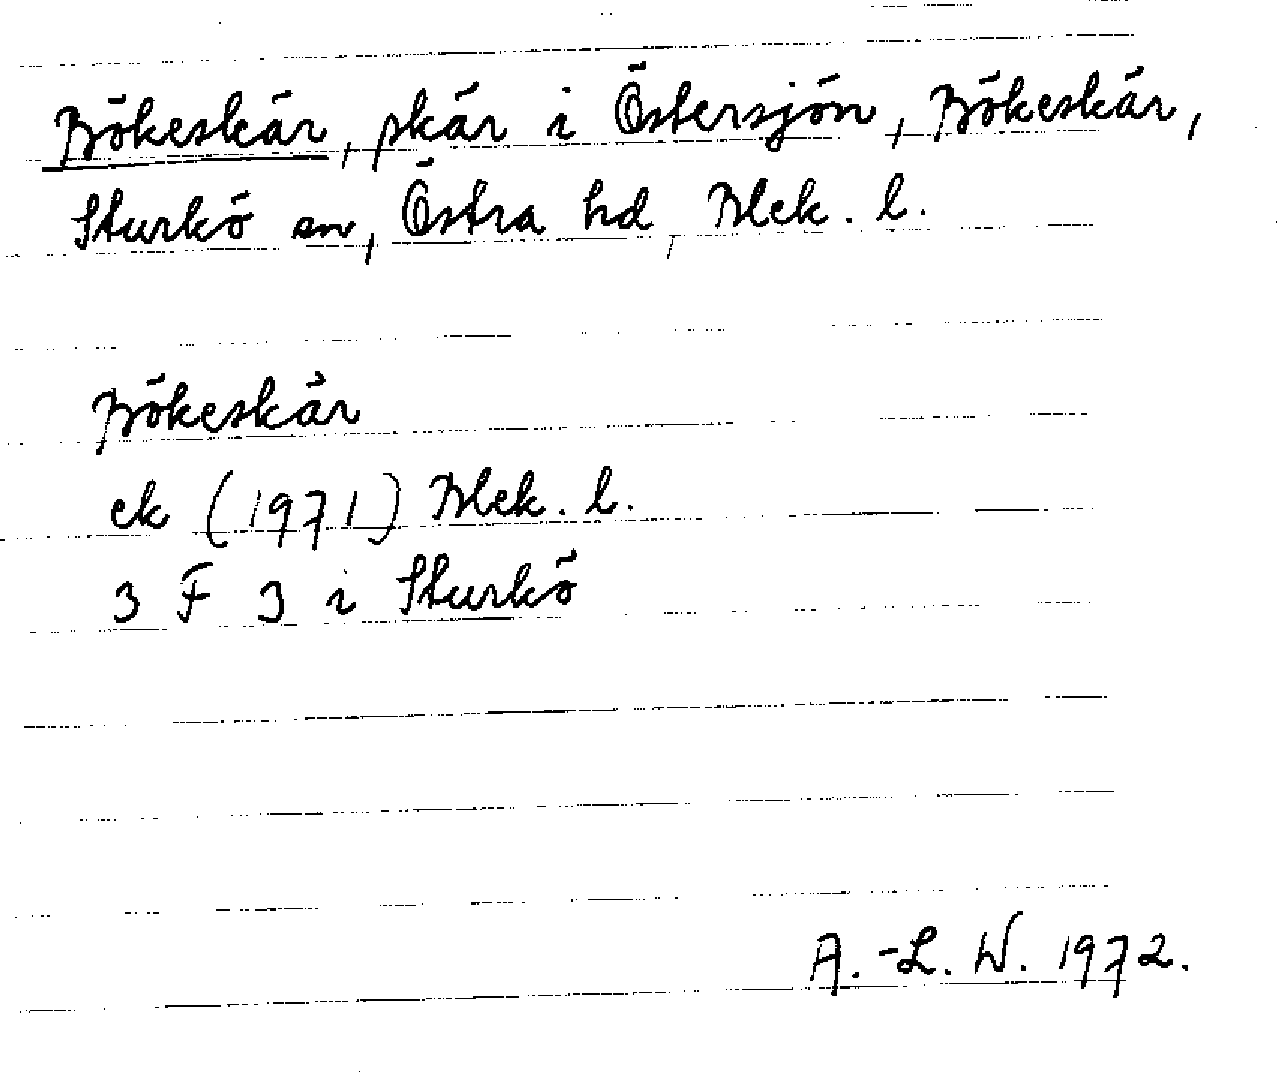 Bökeskär, skär i Östersjön, Bökeskär,
Sturkö sn, Östra hd, Blek. l.
Bökeskär
ek (1971) Blek. l.
3 F 3 i Sturkö
A.-L. W. 1972.